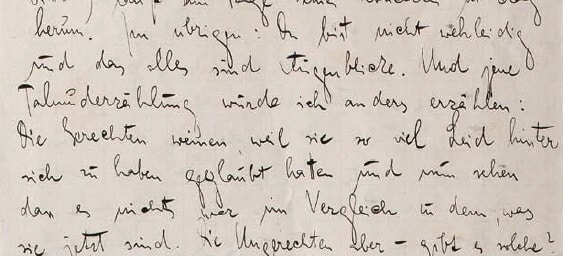 herum. Im übrigen: Du bist nicht wehleidig
und das alles sind Augenblicke. Und jene
Talmuderzählung würde ich anders erzählen:
Die Gerechten weinen, weil sie so viel Leid hinter
sich zu haben geglaubt haten und nun sehen
dass es nichts war im Vergleich zu dem, was
sie jetzt sind. Die Ungerechten aber – gibt es solche?